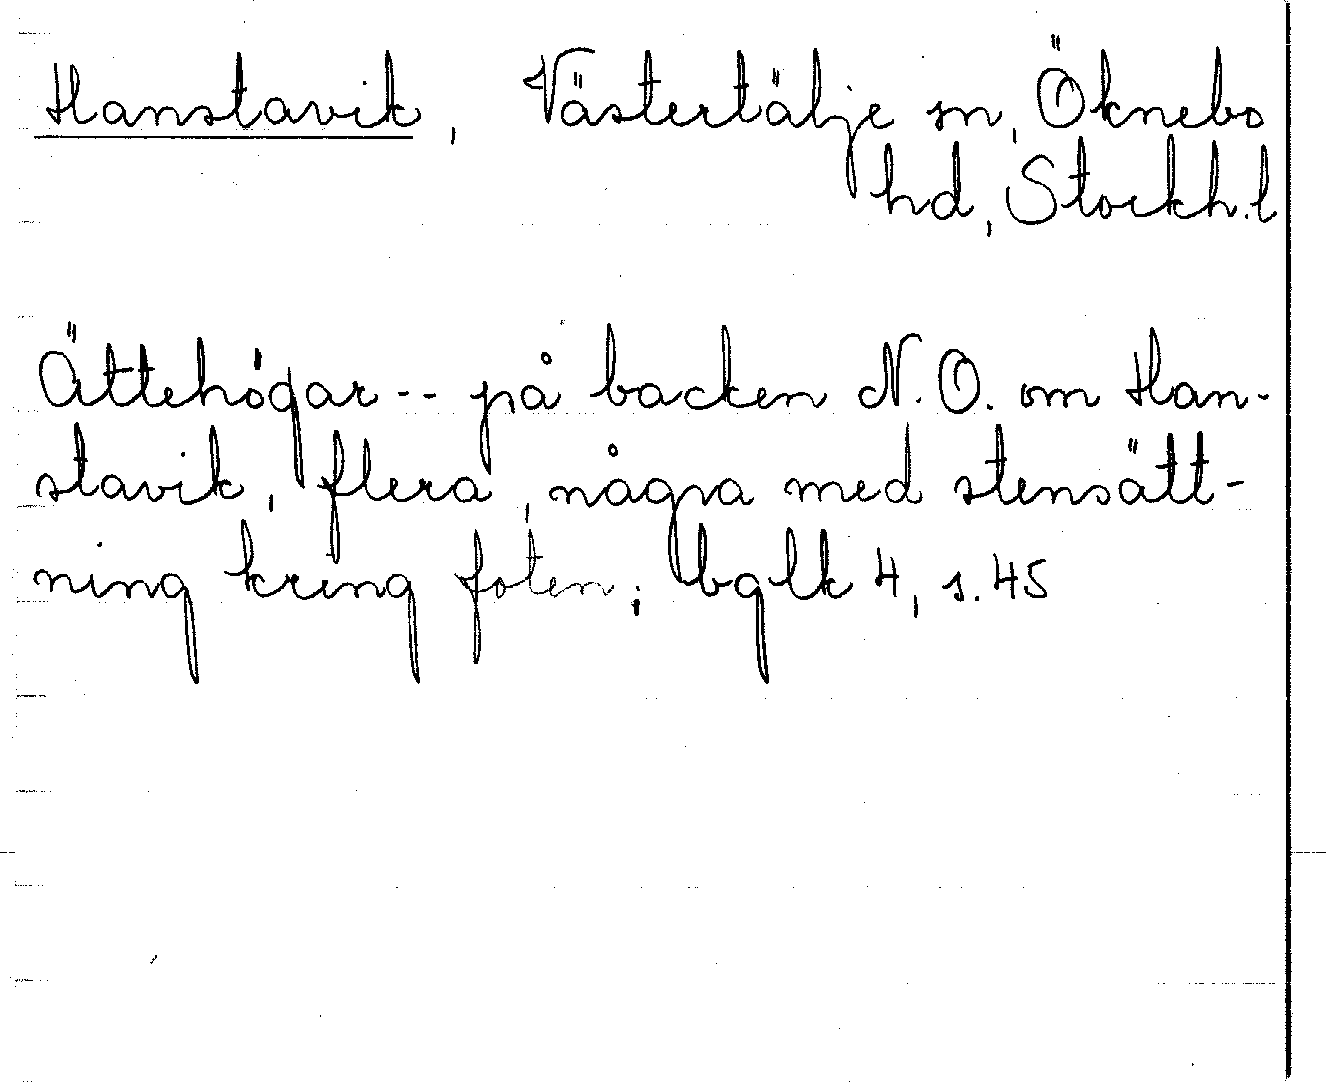 Hanstavik, Västertälje sn, Öknebo
hd, Stockh. l
Ättehögar -- på backen N.O. om Han-
stavik, flera, några med stensätt-
ning kring foten; bglk 4, s. 45